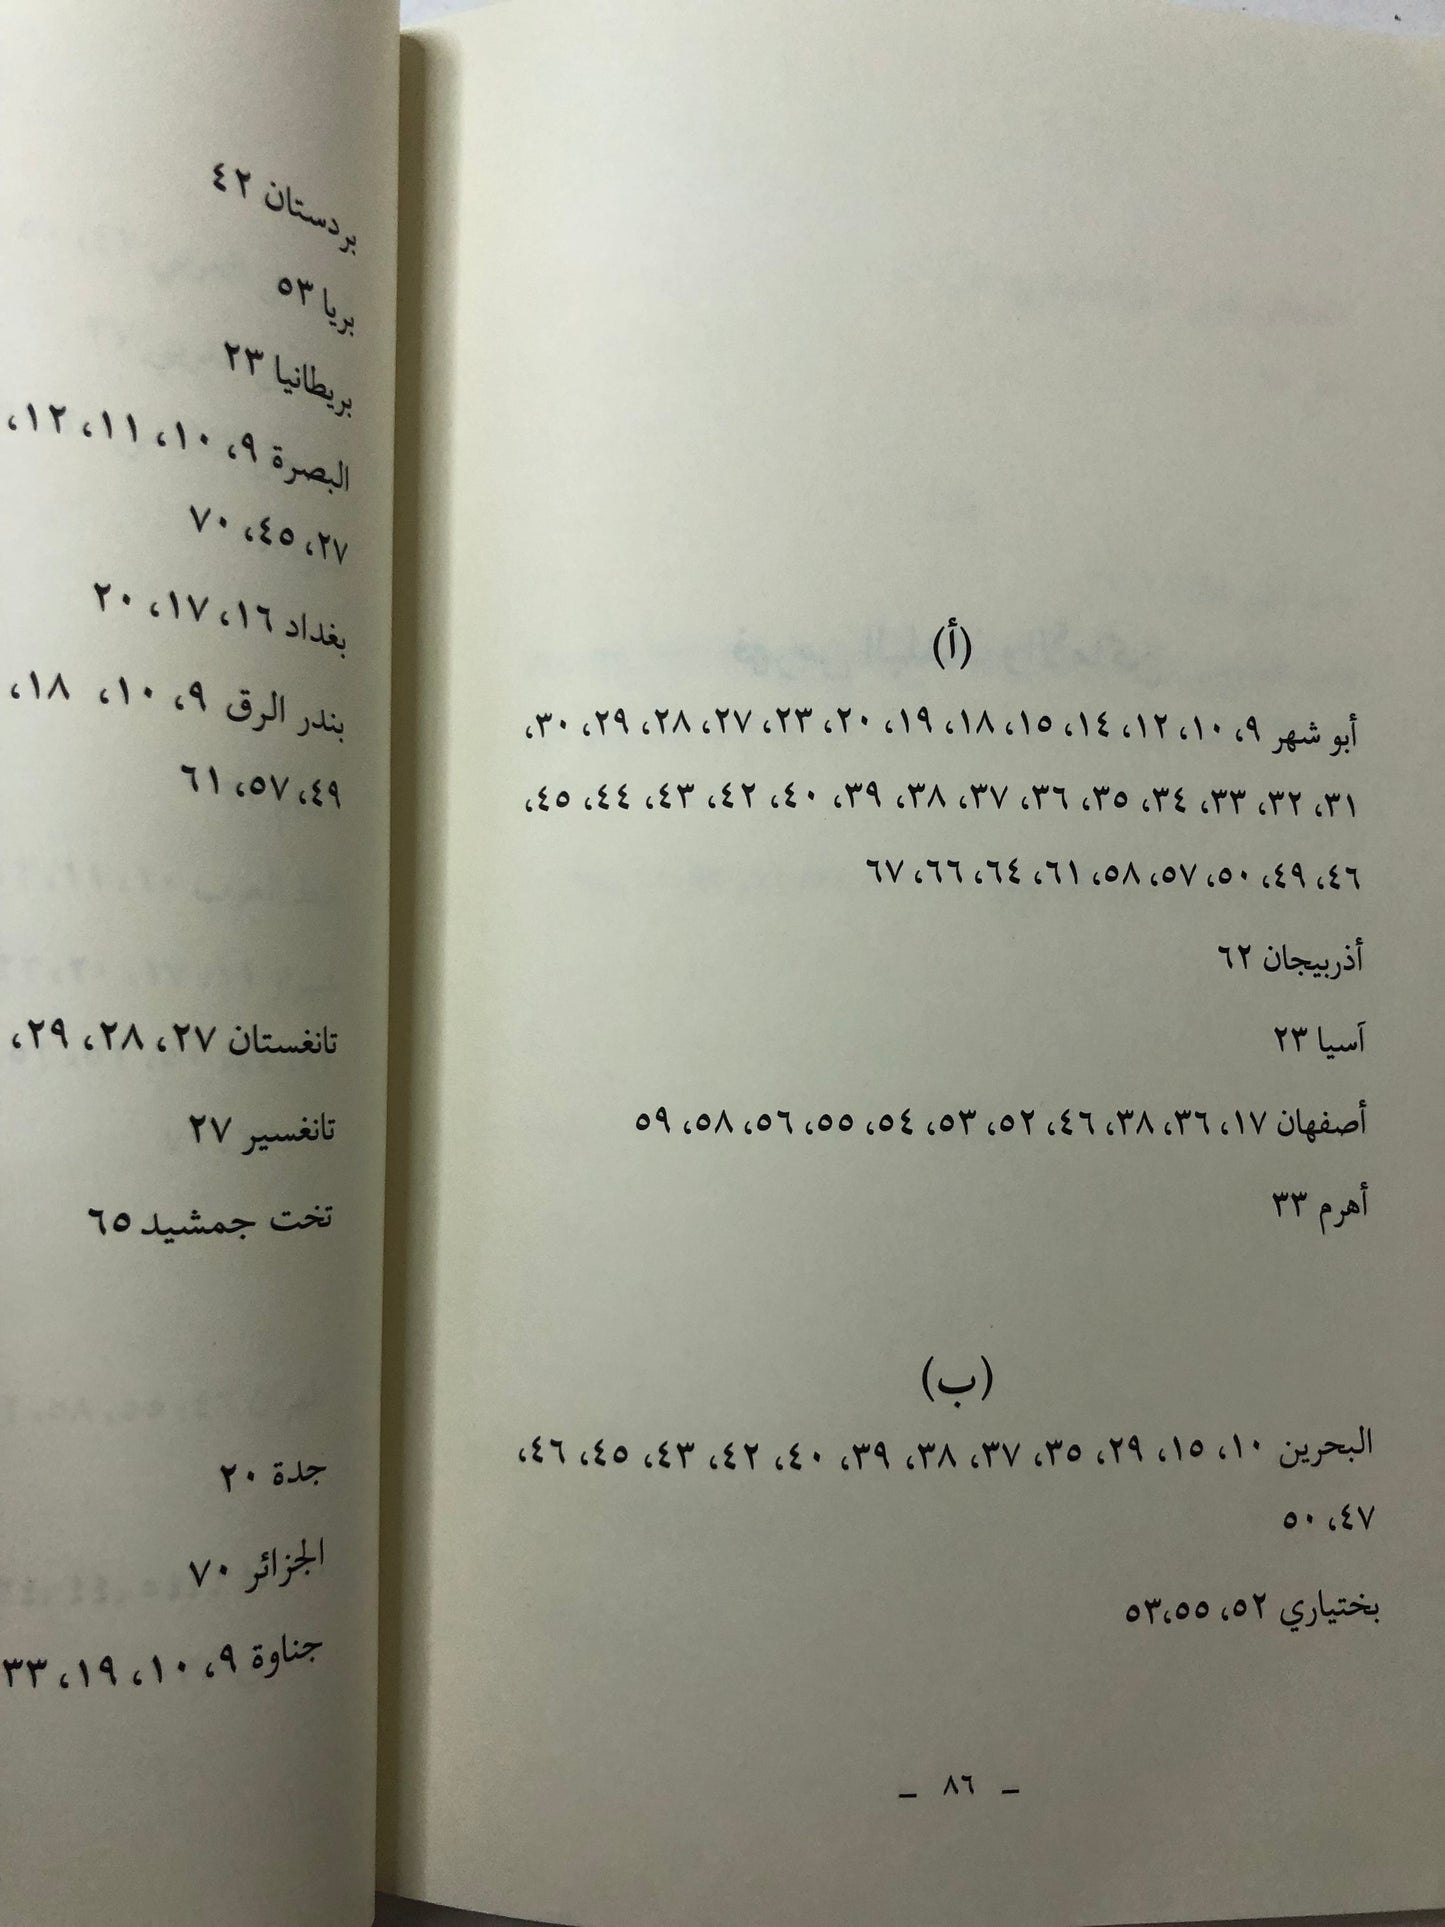 (أ)
أبو شهر ٩، ١٠، ١٢، ١٤، ١٥، ١٨، ١٩، ٢٠، ٢٣، ٢٧، ٢٨، ٢٩، ٣٠،
٣١، ٣٢، ٣٣، ٣٤، ٣٥، ٣٦، ٣٧، ٣٨، ٣٩، ٤٠، ٤٢، ٤٣، ٤٤، ٤٥،
٤٦، ٤٩، ٥٠، ٥٧، ٥٨، ٦١، ٦٤، ٦٦، ٦٧
أذربيجان ٦٢
آسيا ٢٣
أصفهان ١٧، ٣٦، ٣٨، ٤٦، ٥٢، ٥٣، ٥٤، ٥٥، ٥٦، ٥٨، ٥٩
أهرم ٣٣
(ب)
البحرين ١٠، ١٥، ٢٩، ٣٥، ٣٧، ٣٨، ٣٩، ٤٠، ٤٢، ٤٣، ٤٥، ٤٦،
٤٧، ٥٠
بختياري ٥٢، ٥٥،٥٣
– ٨٦ –
بردستان ٤٢
بريا ٥٣
بريطانيا ٢٣
البصرة ٩، ١٠، ١١، ١٢،
٢٧، ٤٥، ٧٠
بغداد ١٦، ١٧، ٢٠
بندر الرق ٩، ١٠، ١٨،
٤٩، ٥٧، ٦١
تانغستان ٢٧، ٢٨، ٢٩،
تانغسير ٢٧
تخت جمشيد ٦٥
جدة ٢٠
الجزائر ٧٠
جناوة ٩، ١٠، ١٩، ٣٣